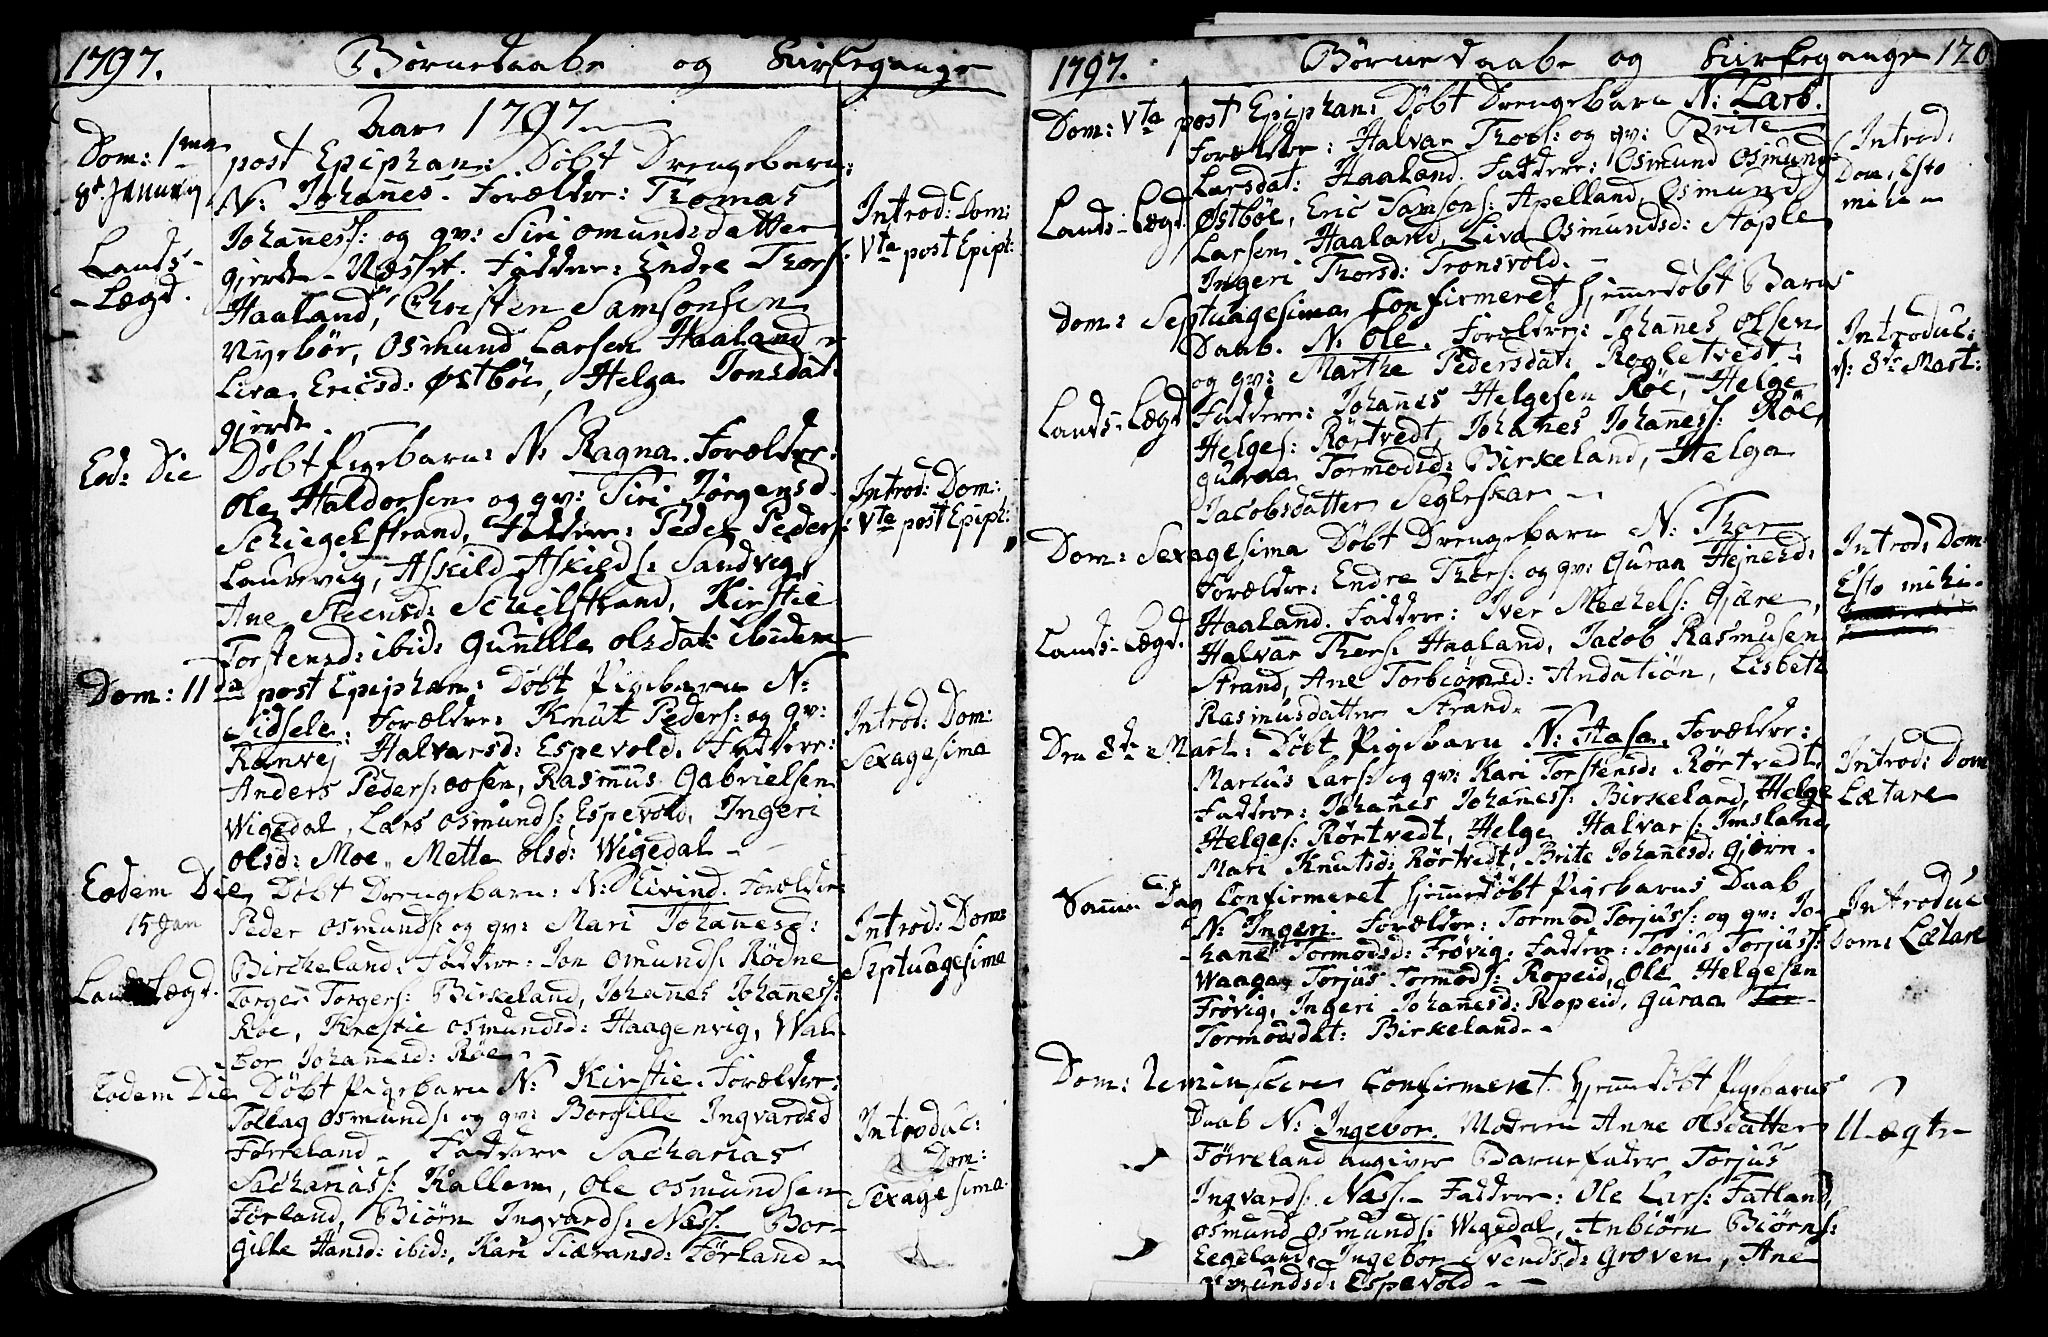 1797. Børnedaabe og Kirkegange
Aar 1797
Dom: 1ma post Epiphan: Døbt Drengebarn:
8de January N: Johanes. Forældre: Thomas
Johaness: og qv: Siri omundsdatter
Lands-Lægd. gjerde-Næsset. Faddere: Endre Thors:
Haaland, Christen Samsonsen
Nyebør, Osmund Larsen Haaland
Liva Ericsd: Østbøe, Helga Jonsdat:
gjerde.
Introd: Dom:
Vta post Epiph:
Eod: Die Døbt Pigebarn: N: Ragna. Forældre:
Ole Haldorsen og qv: Siri Jørgensd:
Schiegelstrand, Faddere: Peder Peders:
Laurvig, Askild Askilds: Sandvig,
Ane Steensd: Schielstrand, Kirstie
Torstensd: ibid: Gunille olsdat: ibidem
Introd: Dom:
Vta post Epiph:
Dom: IIda post Epiphan: Døbt Pigebarn N:
Sidsele. Forældre: Knut Peders: og qv:
Ranvej Halvarsd: Espevold. Faddere:
Anders Peders: oosen, Rasmus Gabrielsen
Wigedal, Lars Osmunds: Espevold, Ingeri
olsd: Moe, Mette olsd: Wigedal
Introd: Dom:
Sexagesima
Eodem Die, Døbt Drengebarn: N: Eivind. Forældre:
15 Jan Peder osmunds: og qv: Mari Johanesd:
Birckeland. Faddere: Jon omunds: Rødne
Lands Lægd. Torger Torgers: Birkeland, Johanes Johaness:
Røe, Krestie osmundsd: Haagenvig, Wal-
bor Johanesd: Røe
Introd: Dom:
Septuagesima
Eodem Die Døbt Pigebarn N: Kirstie. Forældre:
Tollag Osmunds: og qv: Borgille Ingvardsd
Førreland. Faddere Sacharias
Sachariass: Kallem, Ole Osmundsen
Førland, Biørn Ingvards: Næss. Bor-
gille Hansd: ibid:, Kari Tiæransd: Førland
Introduc:
Dom:
Sexagesima.
1797. Børnedaab og Kirkegange 120
Dom: Vta post Epiphan: Døbt Drengebarn N: Lars.
Forældre: Halvar Thors: og qv: Brite
Larsdat: Haaland. Faddere: Osmund Osmunds:
Lands-Lægd. Østbøe, Eric Samsons: Apelland, Osmund
Larsen Haaland, Liva Osmundsd: Staple
Ingeri Thorsd: Tronsvold.
Introd:
Dom: Esto
mihi
Dom: Septuagesima Confirmeret hjemmedøbt Barns
Daab. N: Ole. Forældre: Johanes olsen
og qv: Marthe Pedersdat: Rogletvedt.
Lands-Lægd Faddere: Johanes Helgesen Røe, Helge
Helges: Rørtvedt, Johanes Johaness: Røe,
Guraa Tormodsd: Birkeland, Helga
Jacobsdatter Segleskar
Introduc:
d: 8de Mart:
Dom: Sexagesima Døbt Drengebarn N: Thor
Forældre: Endre Thors: og qv: Guran Hejnesd:
Haaland. Faddere: Iver Mechels: Gjære,
Lands-Lægd. Halvar Thors: Haaland, Jacob Rasmusen
Strand, Ane Torbiørnsd: Andatiøn, Lisbeth
Rasmusdatter Strand.
Introd: Dom
Esto mihi.
Den 8de Mart: Døbt Pigebarn N: Aasa. Forældre:
Marcus Lars: og qv: Kari Torstensd: Rørtvedt.
Faddere: Johanes Johaness: Birkeland, Helge
Helges: Rørtvedt, Helge Halvars: Imsland,
Mari Knutsd: Rørtvedt, Brite Johanesd: Giern.
Introd: Dom
Lætare
Samme Dag Confirmeret hjemmedøbt Pigebarns Daab
N: Ingeri. Forældre: Tormod Torjuss: og qv: Jo-
hane Tormodsd: Frøvig. Faddere: Torjus Torjuss:
Waage, Torjus Tormods: Ropeid, Ole Helgesen
Frøvig, Ingeri Johanesd: Ropeid, Guraa Tor-
Tormodsdat: Birkeland
Introduc
Dom: Lætare
Dom: Reminiscere Confirmeret Hjemmedøbt Pigebarns
Daab N: Ingebor. Moderen Anne olsdatter
Førreland angiver Barnefader Torjus
Ingvards: Næss. Faddere: Ole Lars: Fatland,
Osmund Osmunds: Wigedal, Anbiørn Biørns:
Eegeland, Ingebor Svendsd: Groven, Ane
Osmundsd: Espevold
Uægte